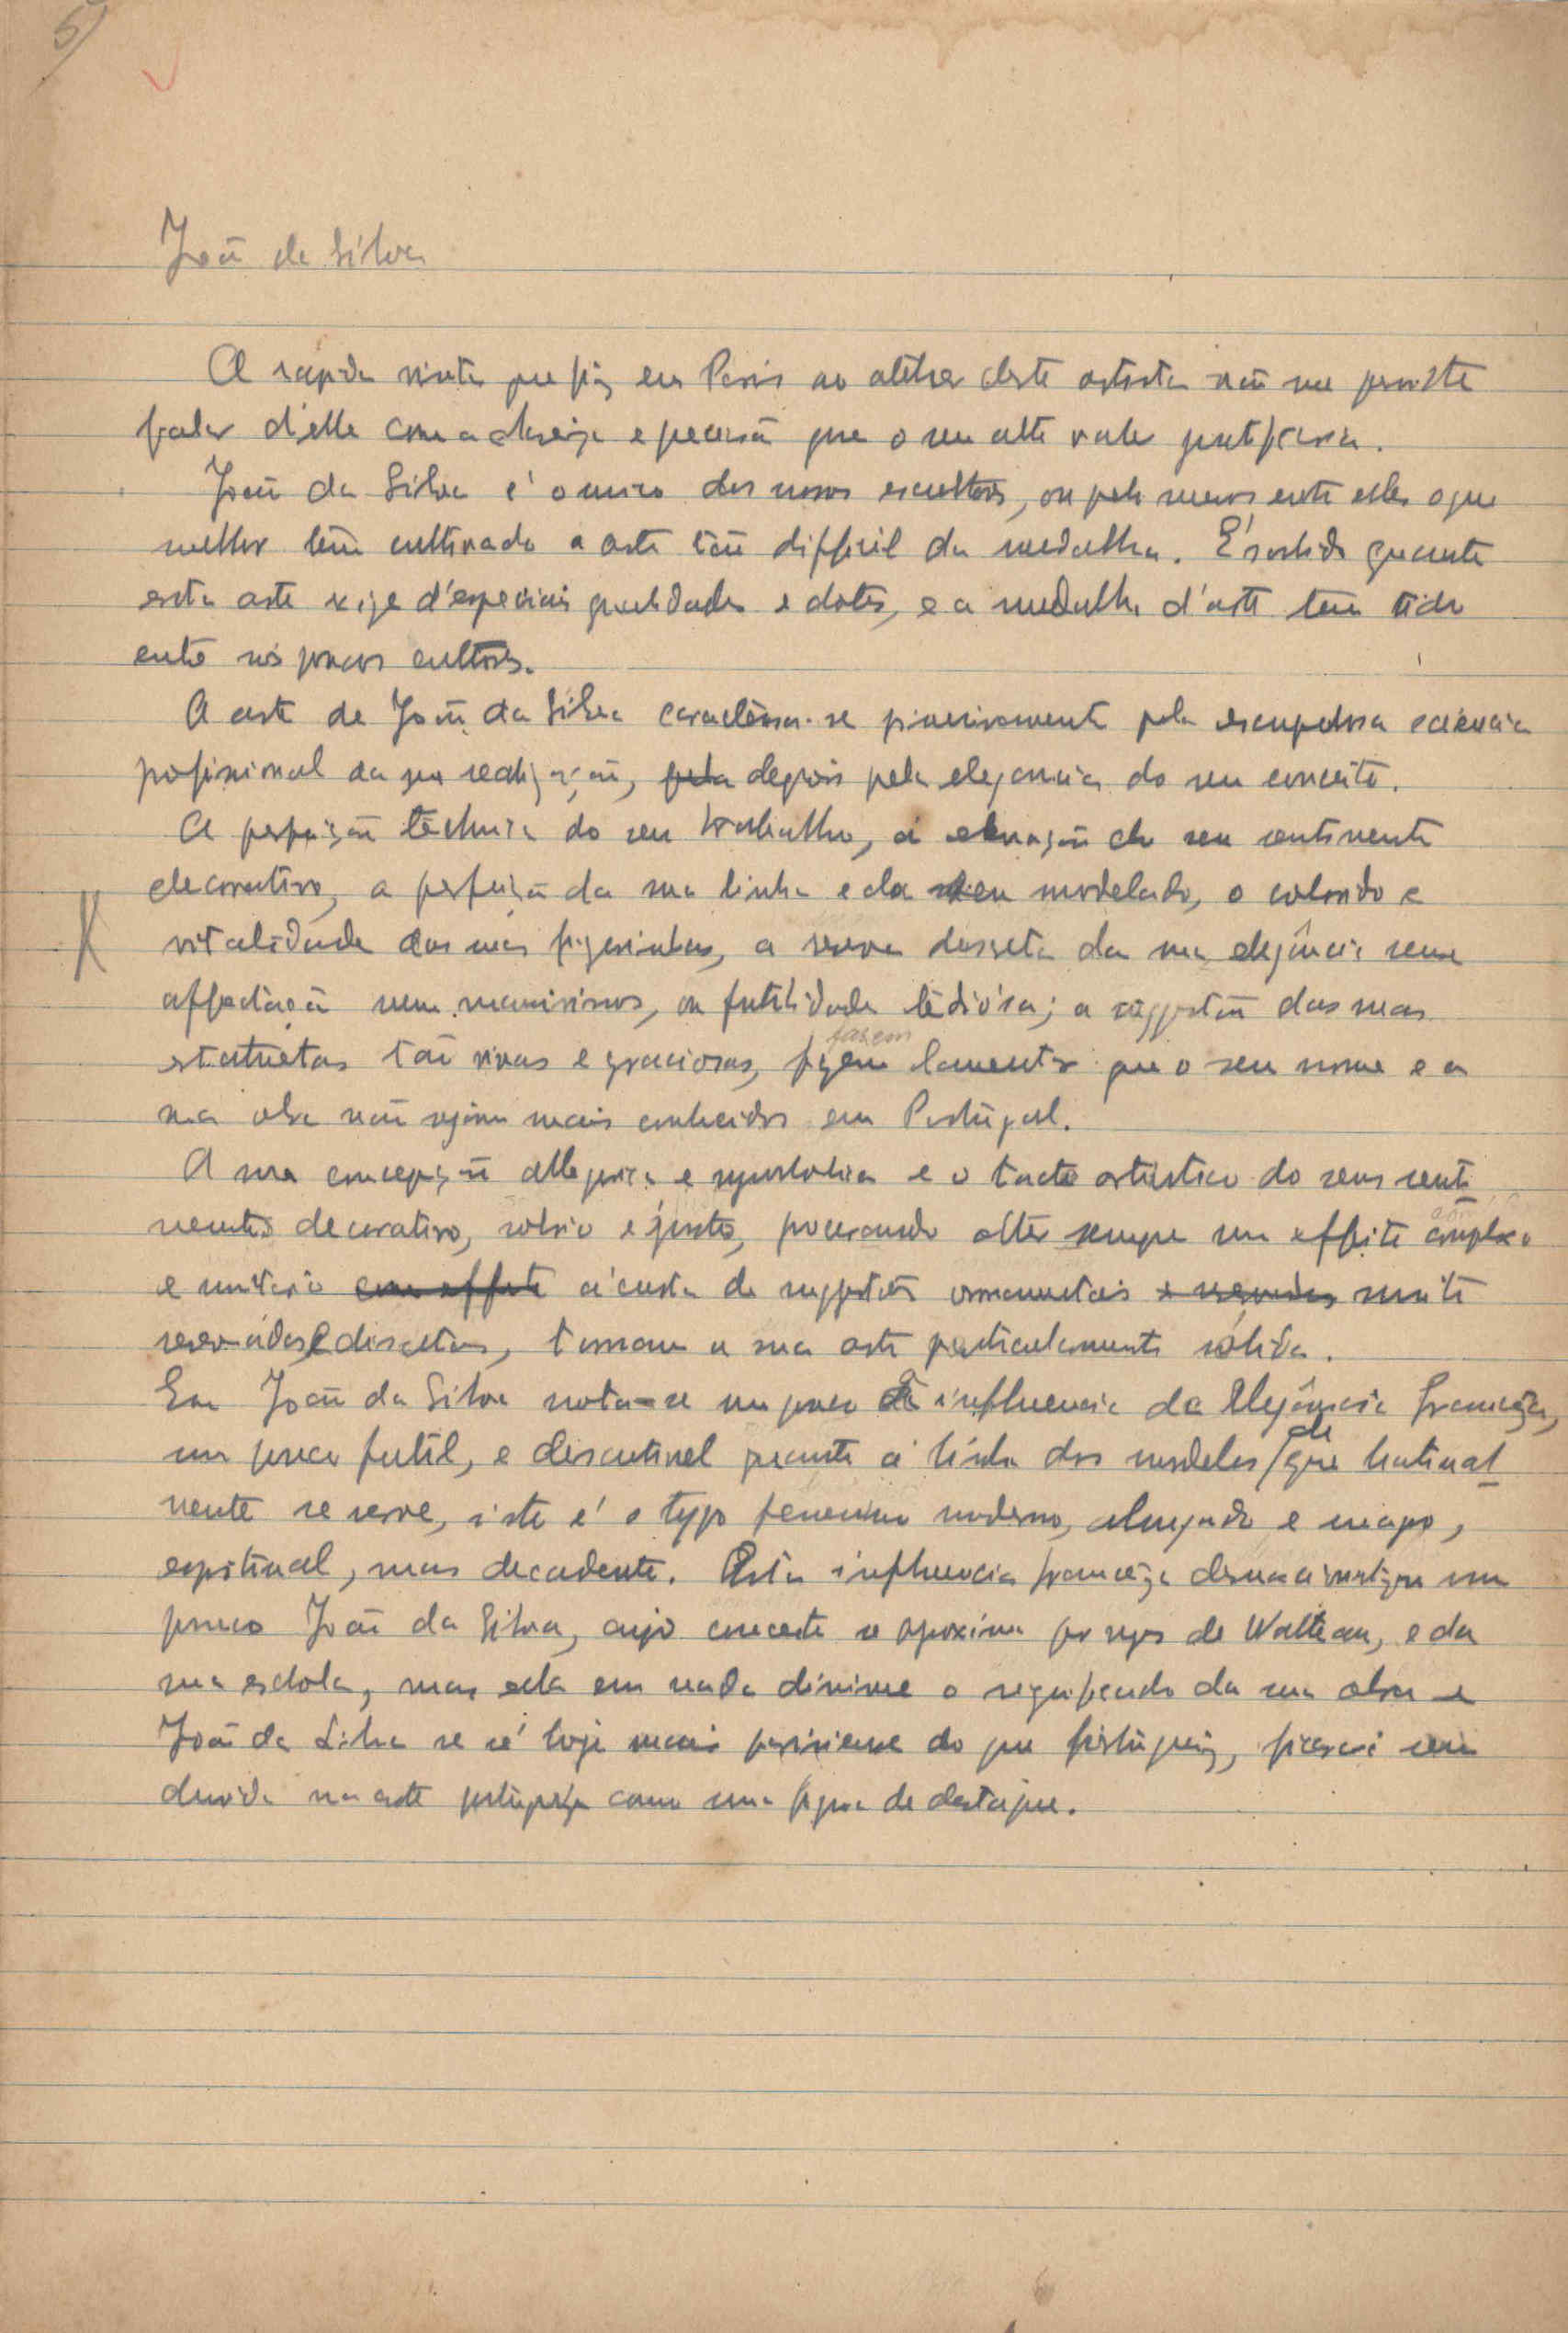 5)
João da Silva
A rapida visita que fiz em Paris ao atelier deste artista não me permitte
falar d'elle com a clareza e precisão que o seu alto valor justificaria.
João da Silva é o unico dos nossos escultores, ou pelo menos entre elles o que
melhor tem cultivado a arte tão difficil da medalha. É sabido quanto
esta arte exige d'especiais qualidades e dotes, e a medalha d'arte tem tido
entre nós poucos cultores.
A arte de João da Silva caracterisa-se primeiramente pela escrupulosa sciencia
profissional da sua realização, pela depois pela elegancia do seu conceito.
A perfeição téchnica do seu trabalho, a elevação do seu sentimento
decorativo, a perfeição da sua linha e do seu modelado, o colorido e
vitalidade das suas figurinhas, a reserva discreta da sua elegância sem
affectação nem maneirismos, ou futilidade tediósa; a suggestão das suas
estatuetas tão vivas e graciosas, fazem lamentar que o seu nome e a
fazem
sua obra não sejam mais conhecidos em Portugal.
A sua concepção allegorica e symbolica e o tacto artistico do seu senti
mento decorativo, sobrio e justo, procurando obter sempre um effeito complexo
e unitario com effeito á custa de suggestões ornamentais e reservadas muito
reservadas e discretas, tornam a sua arte particularmente sólida.
Em João da Silva nota-se um pouco a influencia da elegância franceza,
um pouco futil, e discutivel quanto á linha dos modelos de que habitual
mente se serve, isto é o typo feminino moderno, alongado e magro,
espiritual, mas decadente. Esta influencia franceza desnacionalizou um
pouco João da Silva, cujo conceito se aproxima por vezes de Watteau, e da
sua escola, mas ella em nada diminue o significado da sua obra e
João da Silva se é hoje mais parisiense do que portuguez, ficará sem
duvida na arte portugueza como uma figura de destaque.